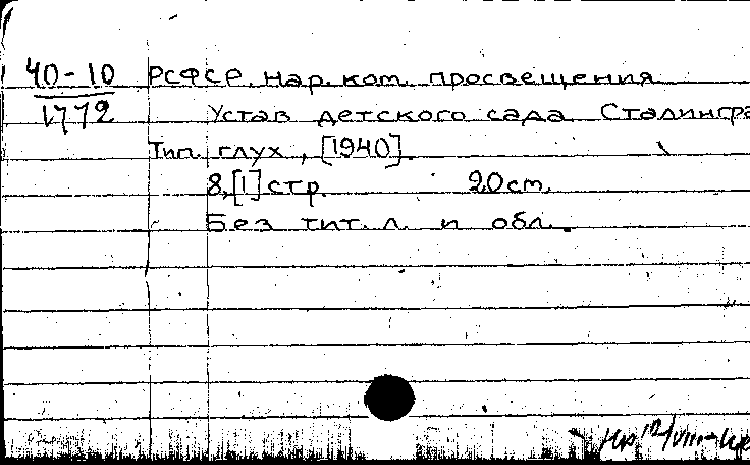 40-10
1772
РСФСР. Нар. ком. просвещения
Устав детского сада Сталингра
Тип. глух, [1940].
8,[1] стр. 20 cm.
Без тит. л. и обл.